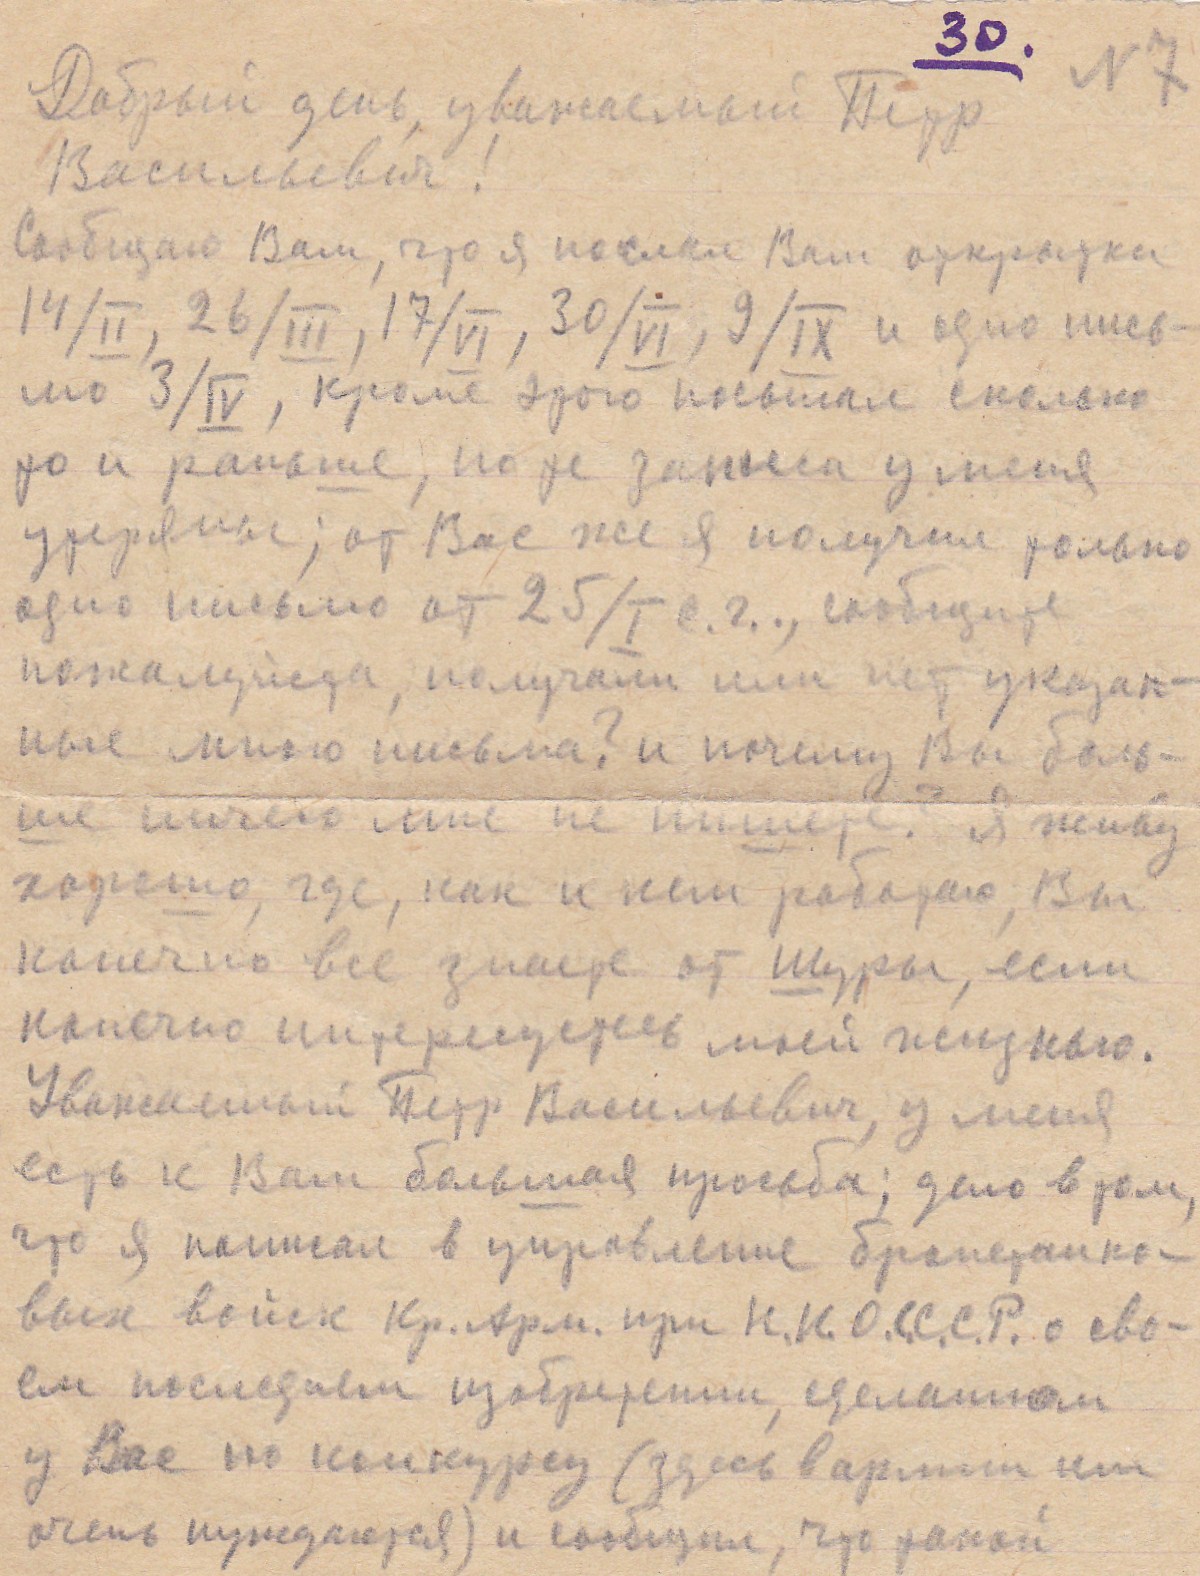 30. N 7
Добрый день, уважаемый Петр
Васильевич!
Сообщаю Вам, что я послал Вам открытки
14/II, 26/III, 17/VI, 30/VI, 9/IX и одно пись-
мо 3/IV, кроме этого посылал сколько
то и раньше, но те записи у меня
утеряны; от Вас же я получил только
одно письмо от 25/I с.г.., сообщите
пожалуйста, получали или нет указан-
ные мною письма? и почему Вы боль-
ше ничего мне не пишете? Я живу
хорошо, где, как и кем работаю, Вы
конечно все знаете от Шуры, если
конечно интересуетесь моей жизнью.
Уважаемый Петр Васильевич, у меня
есть к Вам большая просьба; дело в том,
что я написал в управление бронетанко-
вых войск Кр. Арм. при Н.К.О.С.С.С.Р. о сво-
ем последнем изобретении, сделанном
у Вас по конкурсу (здесь в армии им
очень нуждаются) и сообщил, что такой